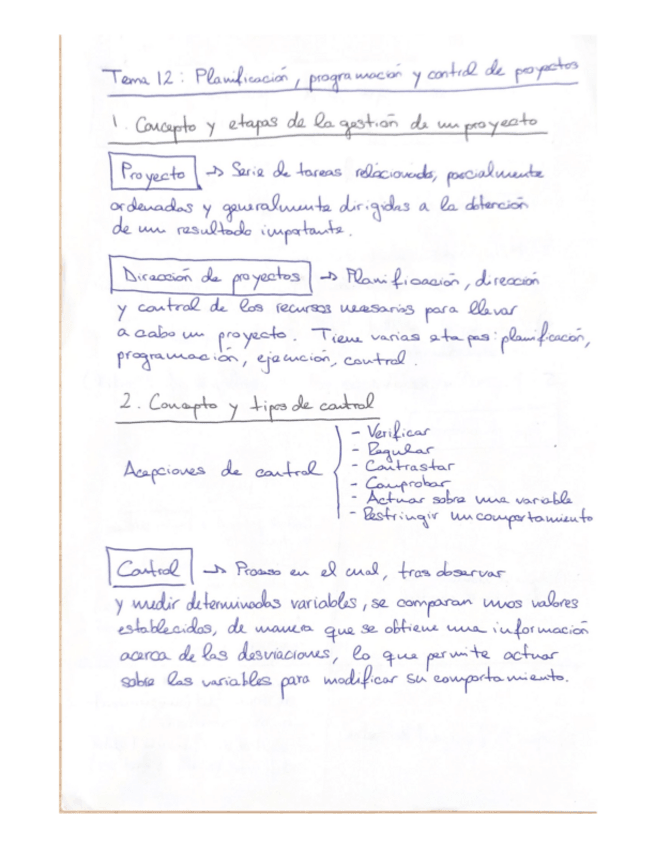 Tema 12: Planificación, programación y control de proyectos
1. Concepto y etapas de la gestión de un proyecto
Proyecto → Serie de tareas relacionadas, parcialmente
ordenadas y generalmente dirigidas a la obtención
de un resultado importante.
Dirección de proyectos → Planificación, dirección
y control de los recursos necesarios para llevar
a cabo un proyecto. Tiene varias etapas: planificación,
programación, ejecución, control.
2. Concepto y tipos de control
Acepciones de control
- Verificar
- Regular
- Contrastar
- Comprobar
- Actuar sobre una variable
- Restringir un comportamiento
Control → Proceso en el cual, tras observar
y medir determinadas variables, se comparan unos valores
establecidos, de manera que se obtiene una información
acerca de las desviaciones, lo que permite actuar
sobre las variables para modificar su comportamiento.